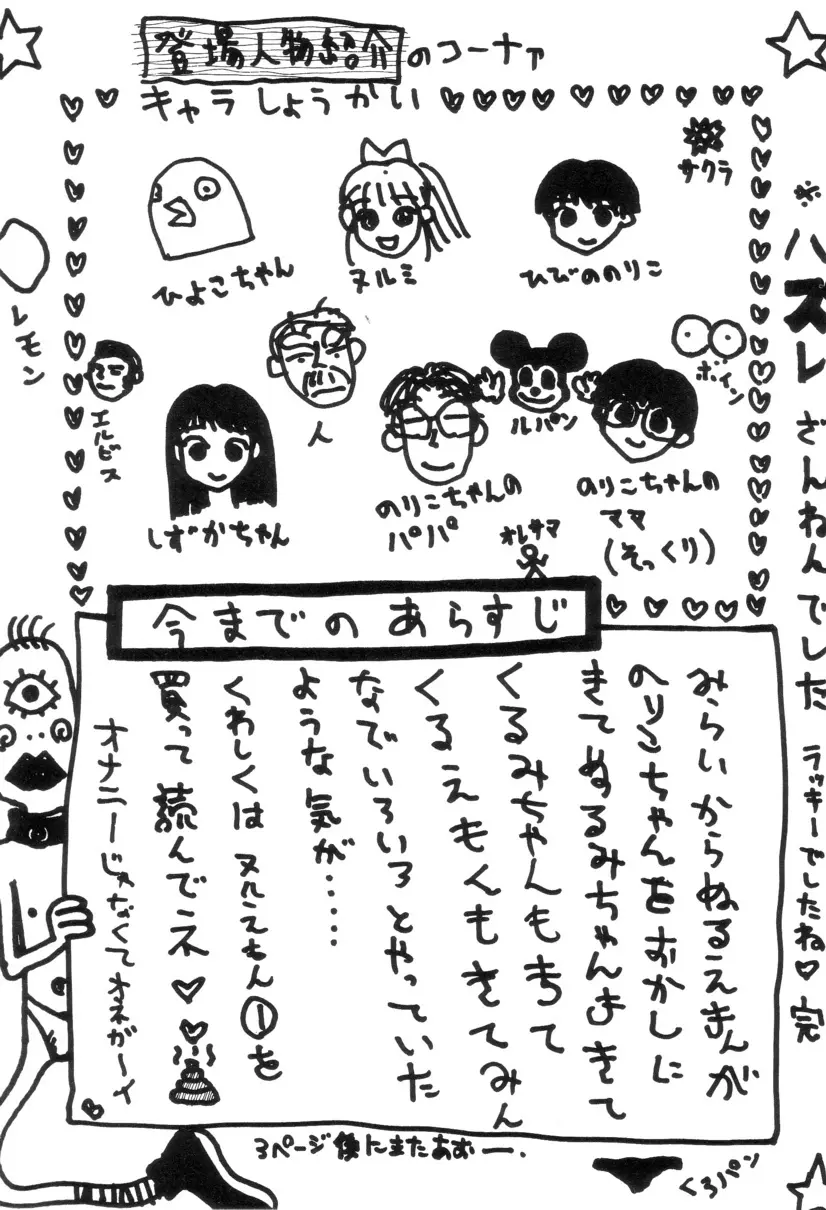 登場人物紹介のコーナァ
キャラしょうかい
サクラ
ひよこちゃん
ヌルミ
ひびののりこ
レモン
エルビス
しずかちゃん
人
のりこちゃんの
パパ
ルパン
ボイン
のりこちゃんの
ママ
(そっくり)
オレサマ
※ハズレ ざんねんでした ラッキーでしたね♡完
今までのあらすじ
みらいからぬるえもんが
のりこちゃんをおかしに
きてぬるみちゃんもきて
くるみちゃんもきて
くるえもんもきてみん
なでいろいろとやっていた
ような気が・・・・
くわしくはヌルえもん①を
買って読んでネ♡♡
オナニーじゃなくてオネガーイ
3ページ後にまたあおー.
くろパン